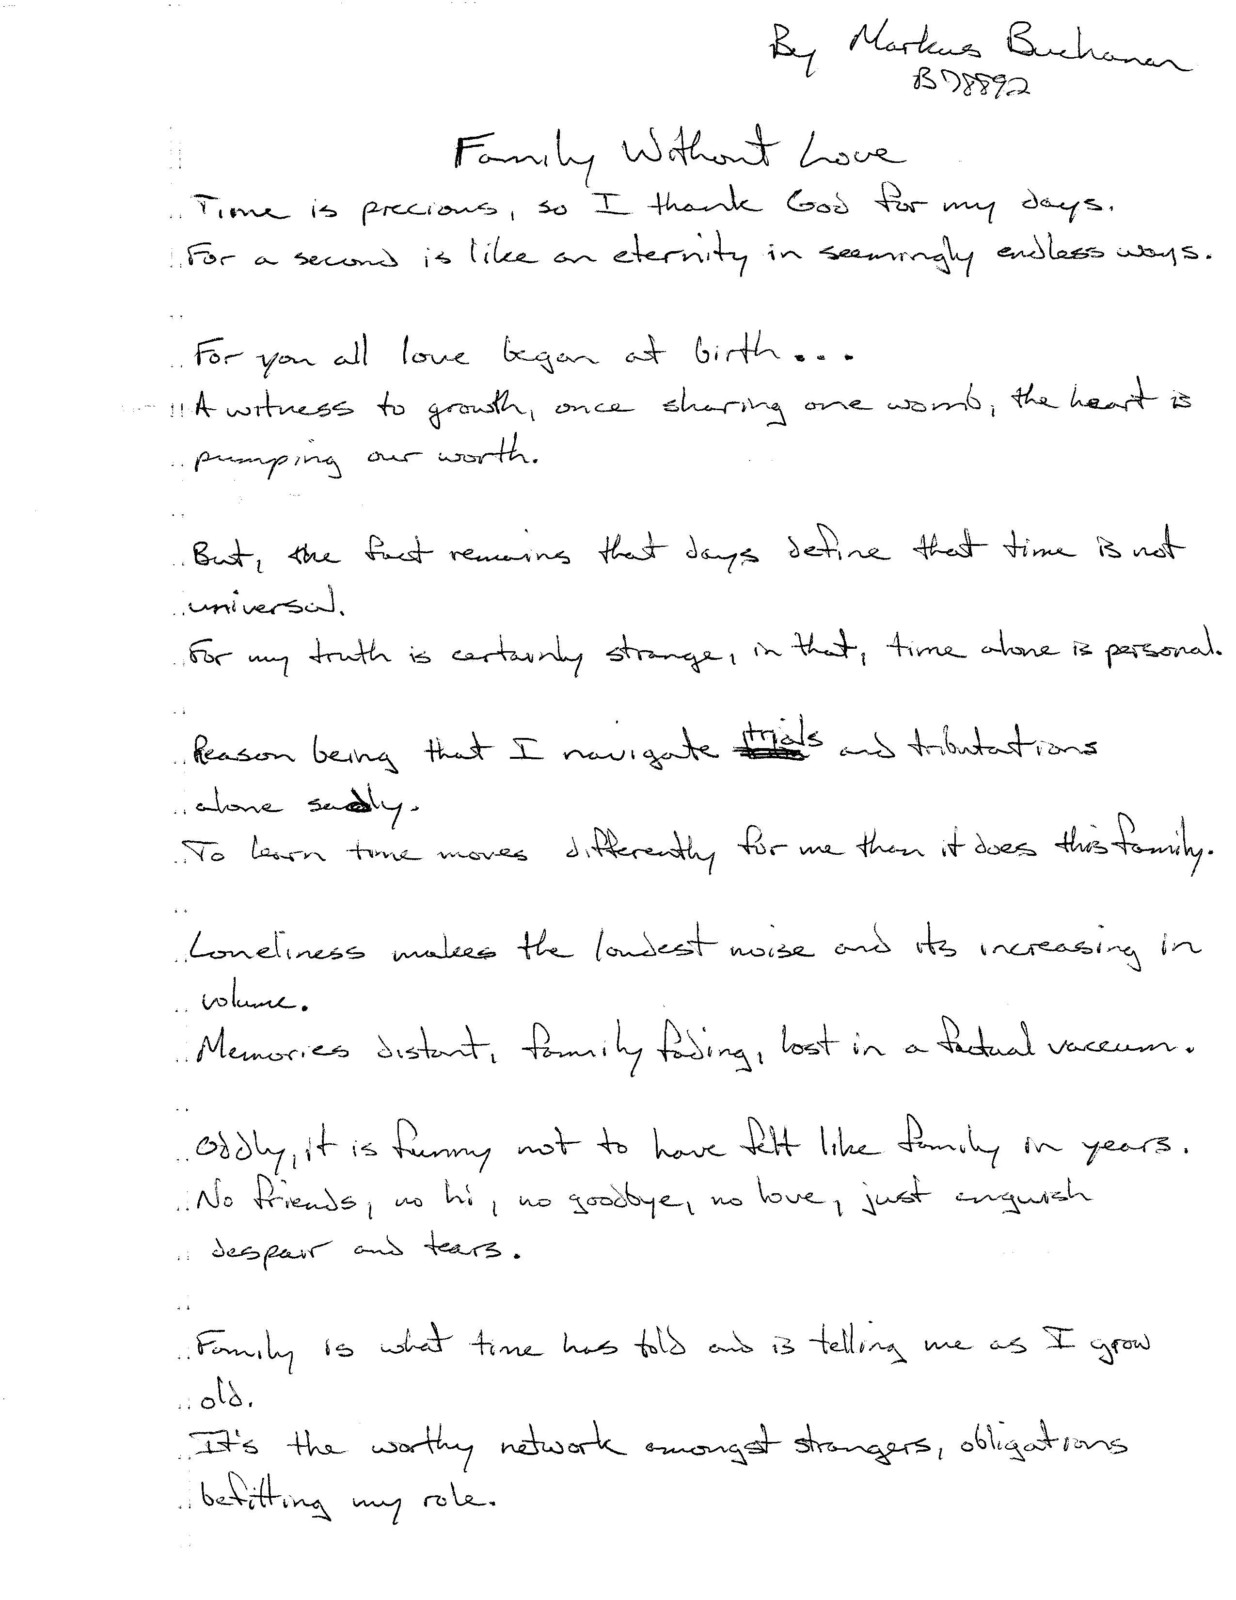 By Markus Buchanan
B78892
Family Without Love
Time is precious, so I thank God for my days.
For a second is like an eternity in seemingly endless ways.
For you all love began at birth...
A witness to growth, once sharing one womb, the heart is
pumping our worth.
But, the fact remains that days define that time is not
universal.
For my truth is certainly strange, in that, time alone is personal.
Reason being that I navigate trials and tributations
alone sadly.
To learn time moves differently for me than it does this family.
Loneliness makes the loudest noise and its increasing in
volume.
Memories distant, family fading, lost in a factual vaccum.
Oddly, it is funny not to have felt like family in years.
No friends, no hi, no goodbye, no love, just anguish
despair and tears.
Family is what time has told and is telling me as I grow
old.
It's the worthy network amongst strangers, obligations
befitting my role.